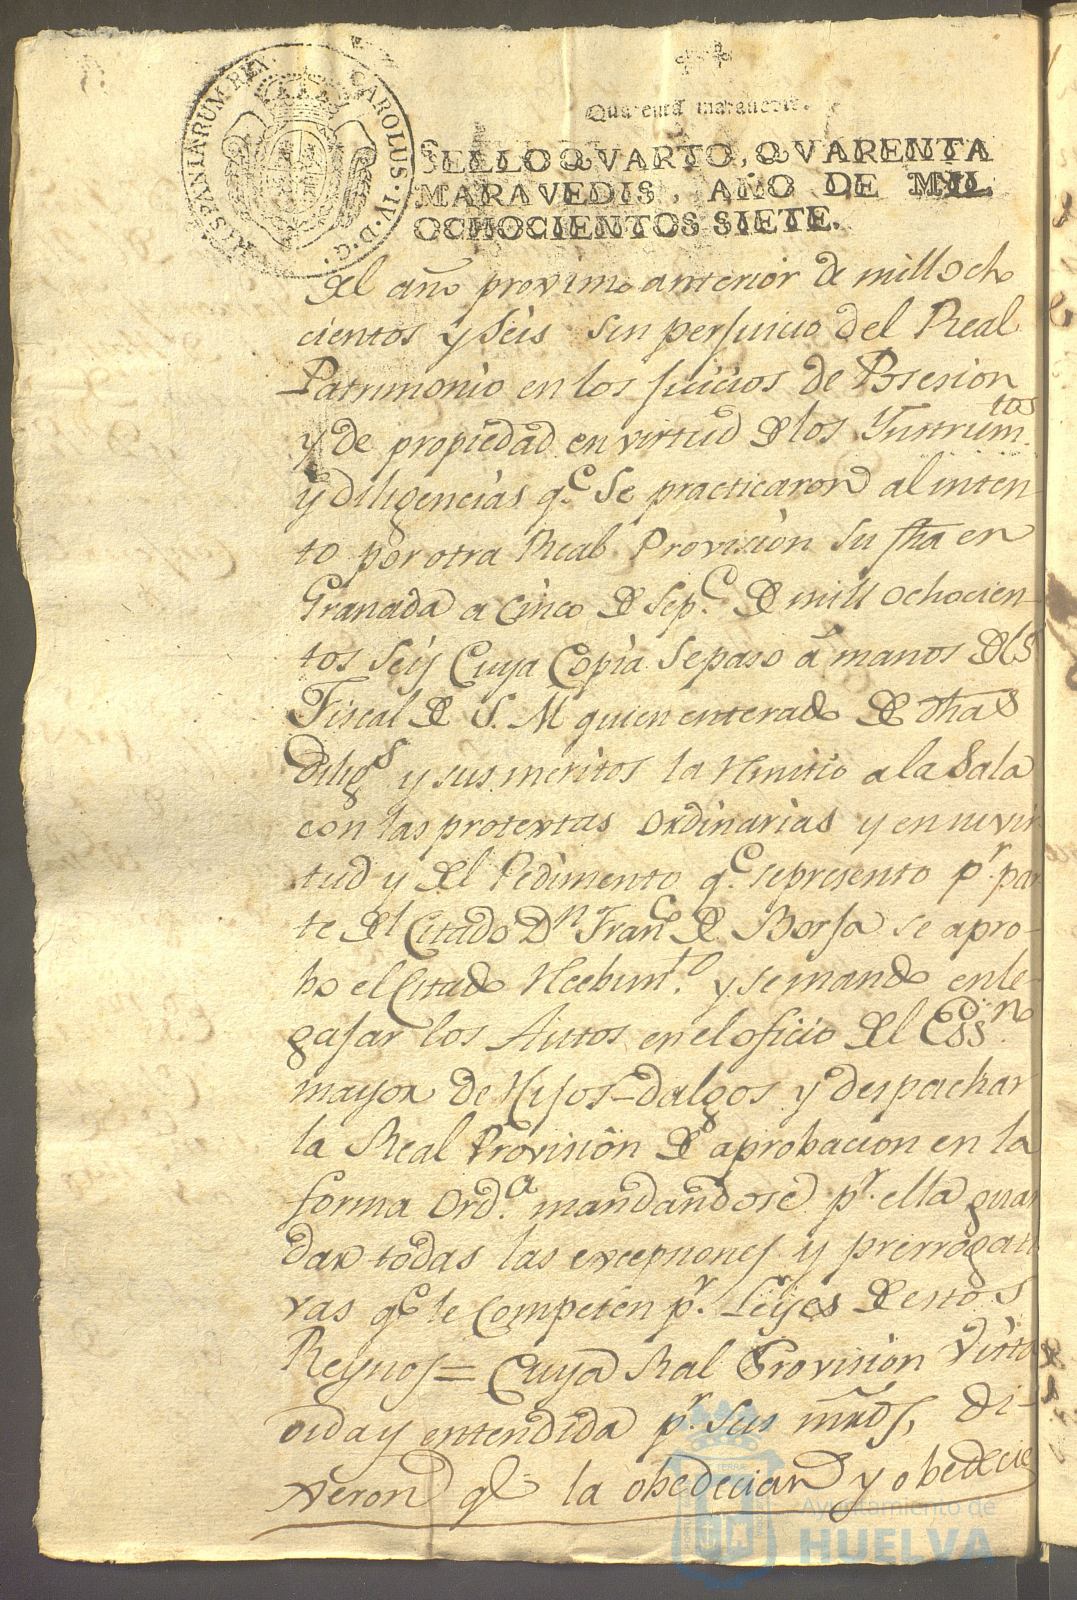 HISPANIARUM REX. CAROLUS · IV · D · G ·
Quarenta maravedis.
SELLO QVARTO, QVARENTA
MARAVEDIS, AÑO DE MIL
OCHOCIENTOS SIETE.
del año proximo anterior de mill ocho
cientos y seis sin perjuicio del Real
Patrimonio en los juicios de Posesion
y de propiedad en virtud de los Ynstrum.tos
y diligencias q.e se practicaron al inten
to por otra Real Provision su fha en
Granada a cinco de Sep.e de mill ochocien-
tos seis Cuya Copia se paso á manos del
Fiscal de S. M quien enterado de dhas
dilig.s y sus meritos la remitio a la Sala
con las protextas ordinarias y en su vir
tud y del Pedimento q.e se presento p.r par
te del Citado D.n Fran.co de Borja se apro-
bo el Citado Recebim.to y se mando enle-
gajar los Autos en el oficio del Ess.no
mayor de Hijos-dalgos y despachar
la Real Provision de aprobacion en la
forma ord.a mandandose p.r ella guar
dar todas las excepciones y prerrogati
vas q.e le competen p.r Leyes de estos
Reynos = Cuya Real Provision Vista
oida y entendida p.r sus mrds, di-
xeron q.e la obedecian y obedecie
Ayuntamiento de
HUELVA